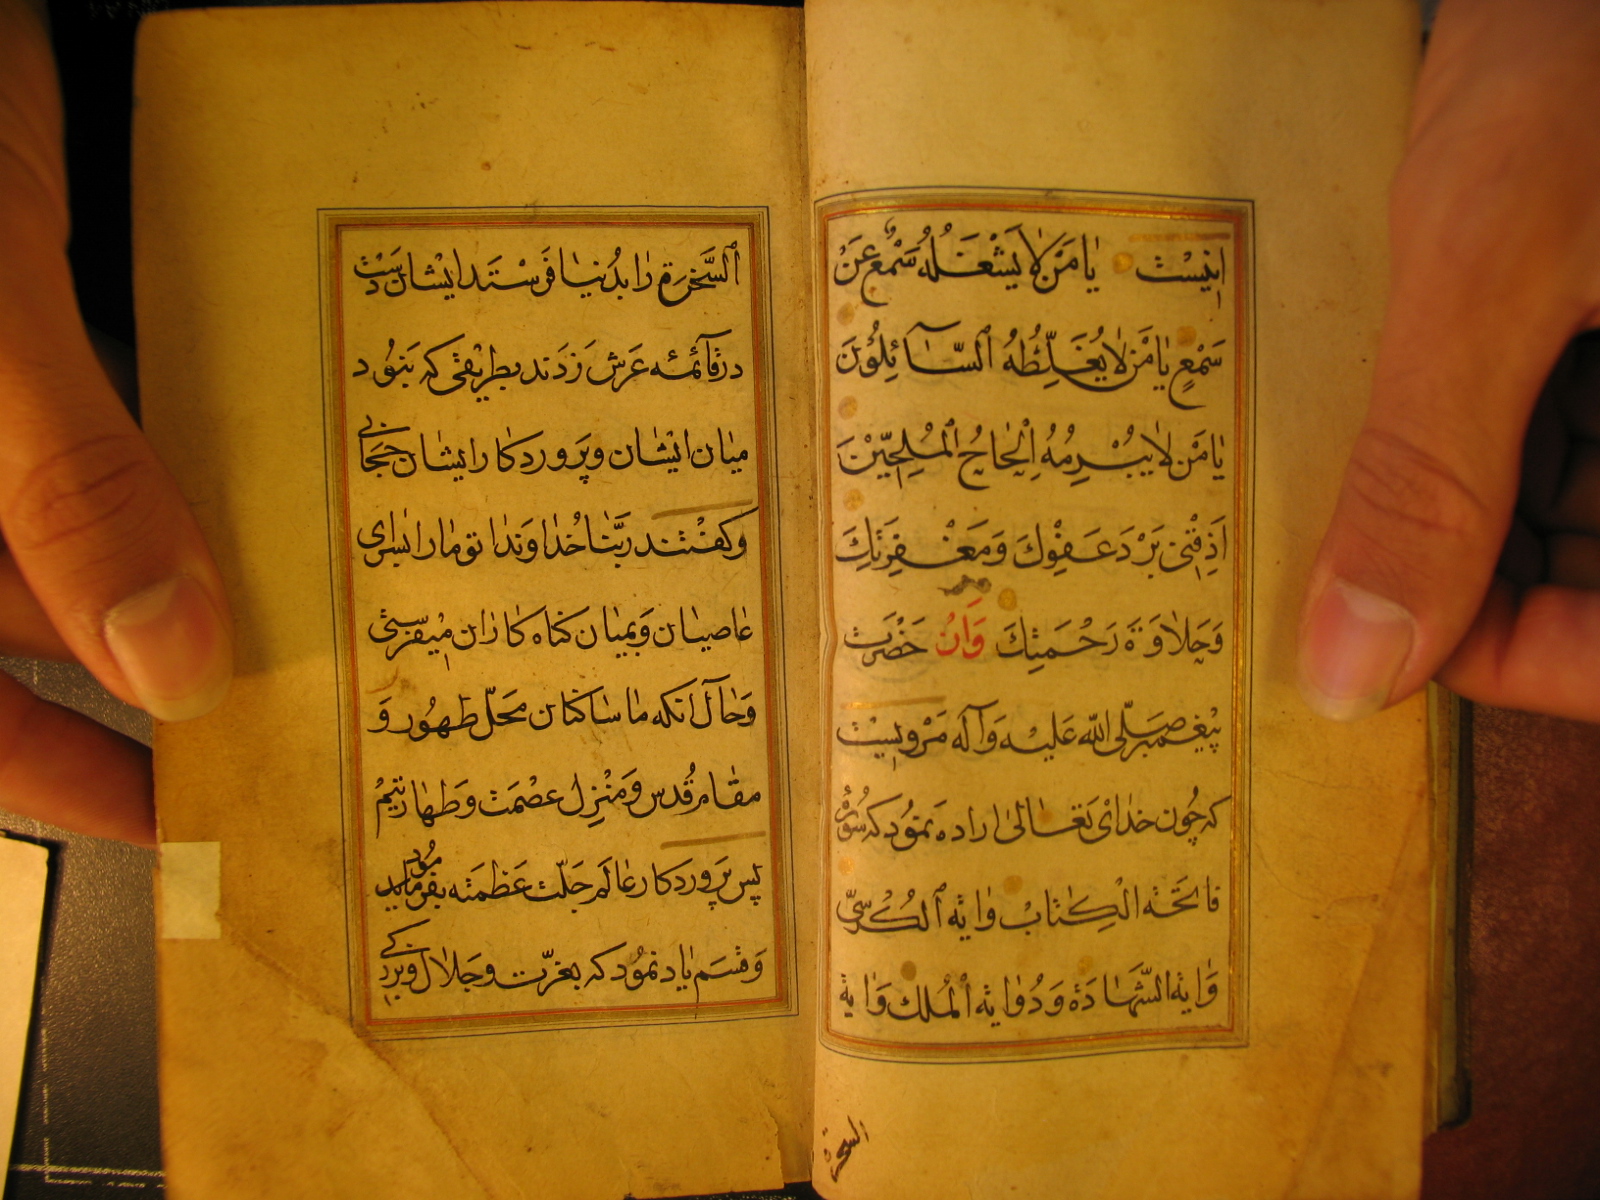 اینست یا مَنْ لا یَشْغَلُهُ سَمْعٌ عَنْ
سَمْعٍ یا مَنْ لا یُغَلِّطُهُ ٱلسّآئِلُونَ
یا مَنْ لا یُبْرِمُهُ اِلْحاحُ ٱلْمُلِحّیْنَ
اَذِقْنی بَرْدَ عَفْوِكَ وَمَغْفِرَتِكَ
وَحَلاوَةَ رَحْمَتِكَ وَانْ حَضْرَت
پیغمبر صَلّی اللّه عَلَیْه وَآله مَرْویسْت
که چُون خدای تَعالیٰ اراده نمود که سُورهٔ
فاتحَة الْکِتابْ وایة ٱلْکُرْسیّ
وایة الشَّهادَة وَدُو ایة ٱلْمُلك وَایة
السخرة
ٱلسَّخرَة را بدُنیا فَرسْتَد ایشان دَسْت
در قآئمهٔ عَرش زَدَند بطریقی که نبُود
میان ایشان وپَروردکار ایشان حجابی
وَکفتند رَبَّنا خُداوَندا تو مارا بسرای
عاصیان وَبمیان کناه کاران میفرستی
وَحال آنکه ما ساکنان محَلّ طهُور وَ
مقام قُدس وَمَنْزِل عصْمَت وَطهارتیمْ
پس پَروردکار عالَم جَلّت عَظمَته بفرماید
مود
وَقسَم یاد نمُود که بعزّت وجَلال وبزرکی